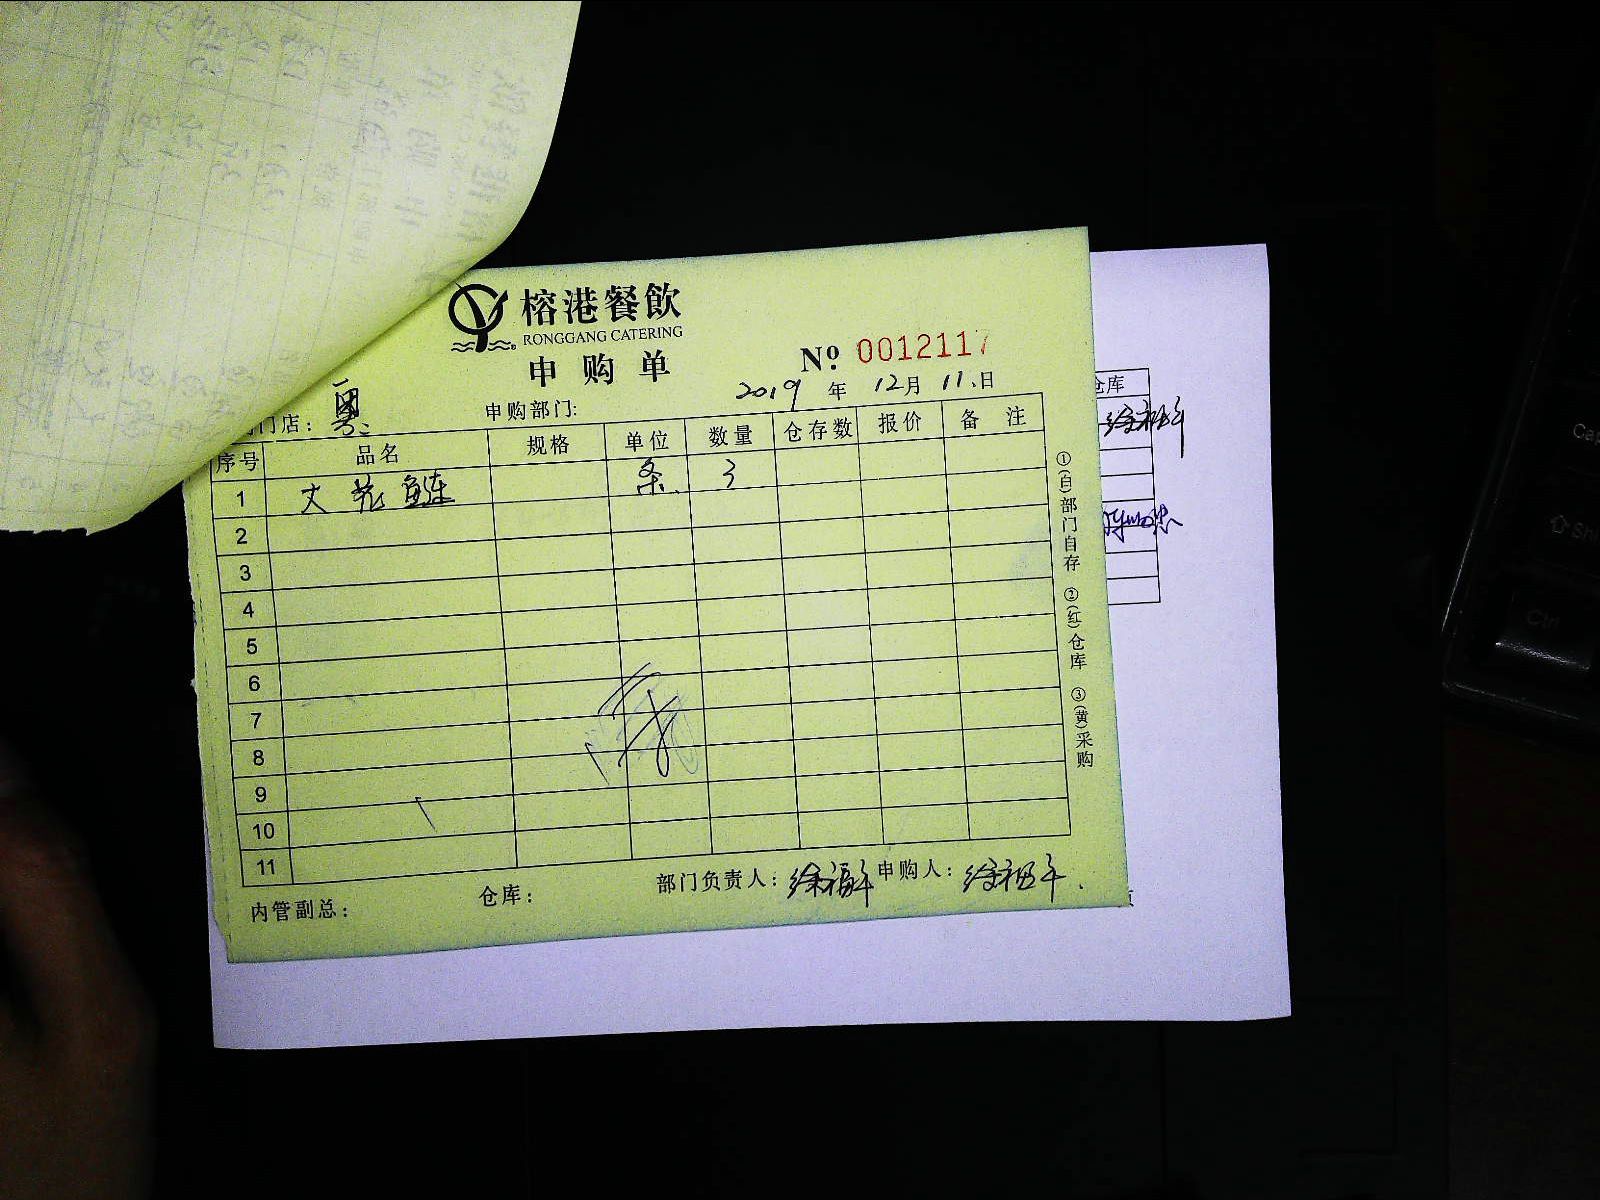 榕港餐飲
RONGGANG CATERING
申购单
Nº 0012117
2019 年 12月 11日
门店： 申购部门:
序号 品名 规格 单位 数量 仓存数 报价 备注
1 花鲢 条 3
2
3
4
5
6
7
8
9
10
11
内管副总： 仓库： 部门负责人：徐福平 申购人：徐福平
①(白)部门自存 ②(红)仓库 ③(黄)采购
仓库
徐福平
Cap
Shi
Ctrl